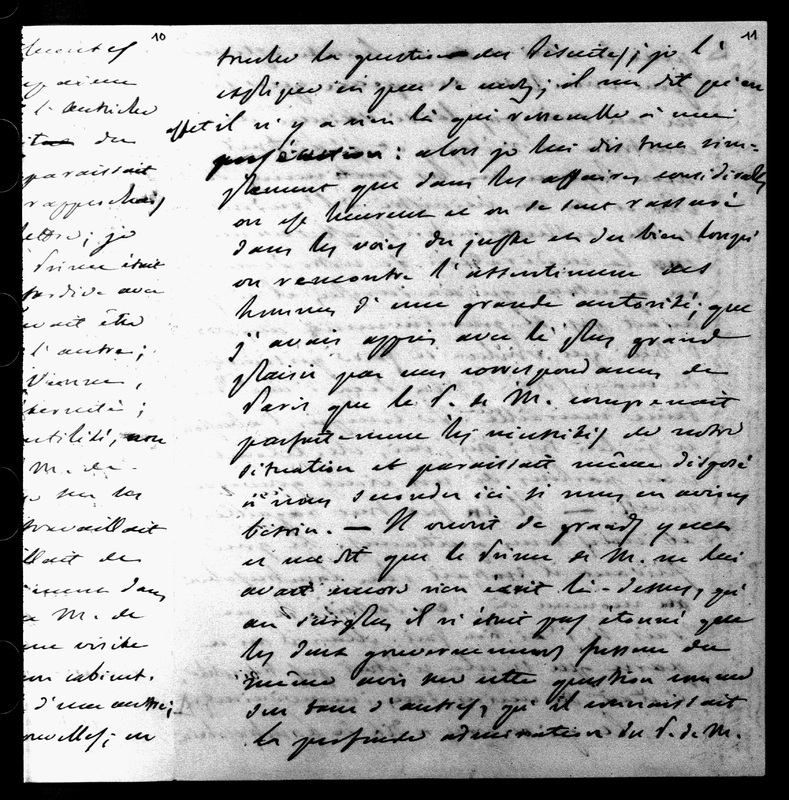 10
l'Autriche
du
paraissait
lettre ; je
Prince était
avec
avait été
l'autre ;
Vienne,
utilité, non
M. de
sur les
travaillait
de
dans
M. de
une visite
son cabinet.
d'une autre ;
nouvelles ; en
11
toucher la question des Jésuites ; je l'
expliquai en peu de mots ; il me dit qu'en
effet il n'y a rien là qui ressemble à une
persécution : alors je lui dis tout sim-
plement que dans les affaires considérables
on est heureux et on se sent rassuré
dans les voies du juste et du bien lorsqu'
on rencontre l'assentiment des
hommes d'une grande autorité ; que
j'avais appris avec le plus grand
plaisir par mes correspondances de
Paris que le P. de M. comprenait
parfaitement les nécessités de notre
situation et paraissait même disposé
à nous seconder ici si nous en avions
besoin. — Il ouvrit de grands yeux
et me dit que le Prince de M. ne lui
avait encore rien écrit là-dessus, qu'
au surplus il n'était pas étonné que
les deux gouvernements fussent du
même avis sur cette question comme
sur tant d'autres, qu'il connaissait
la profonde admiration du P. de M.